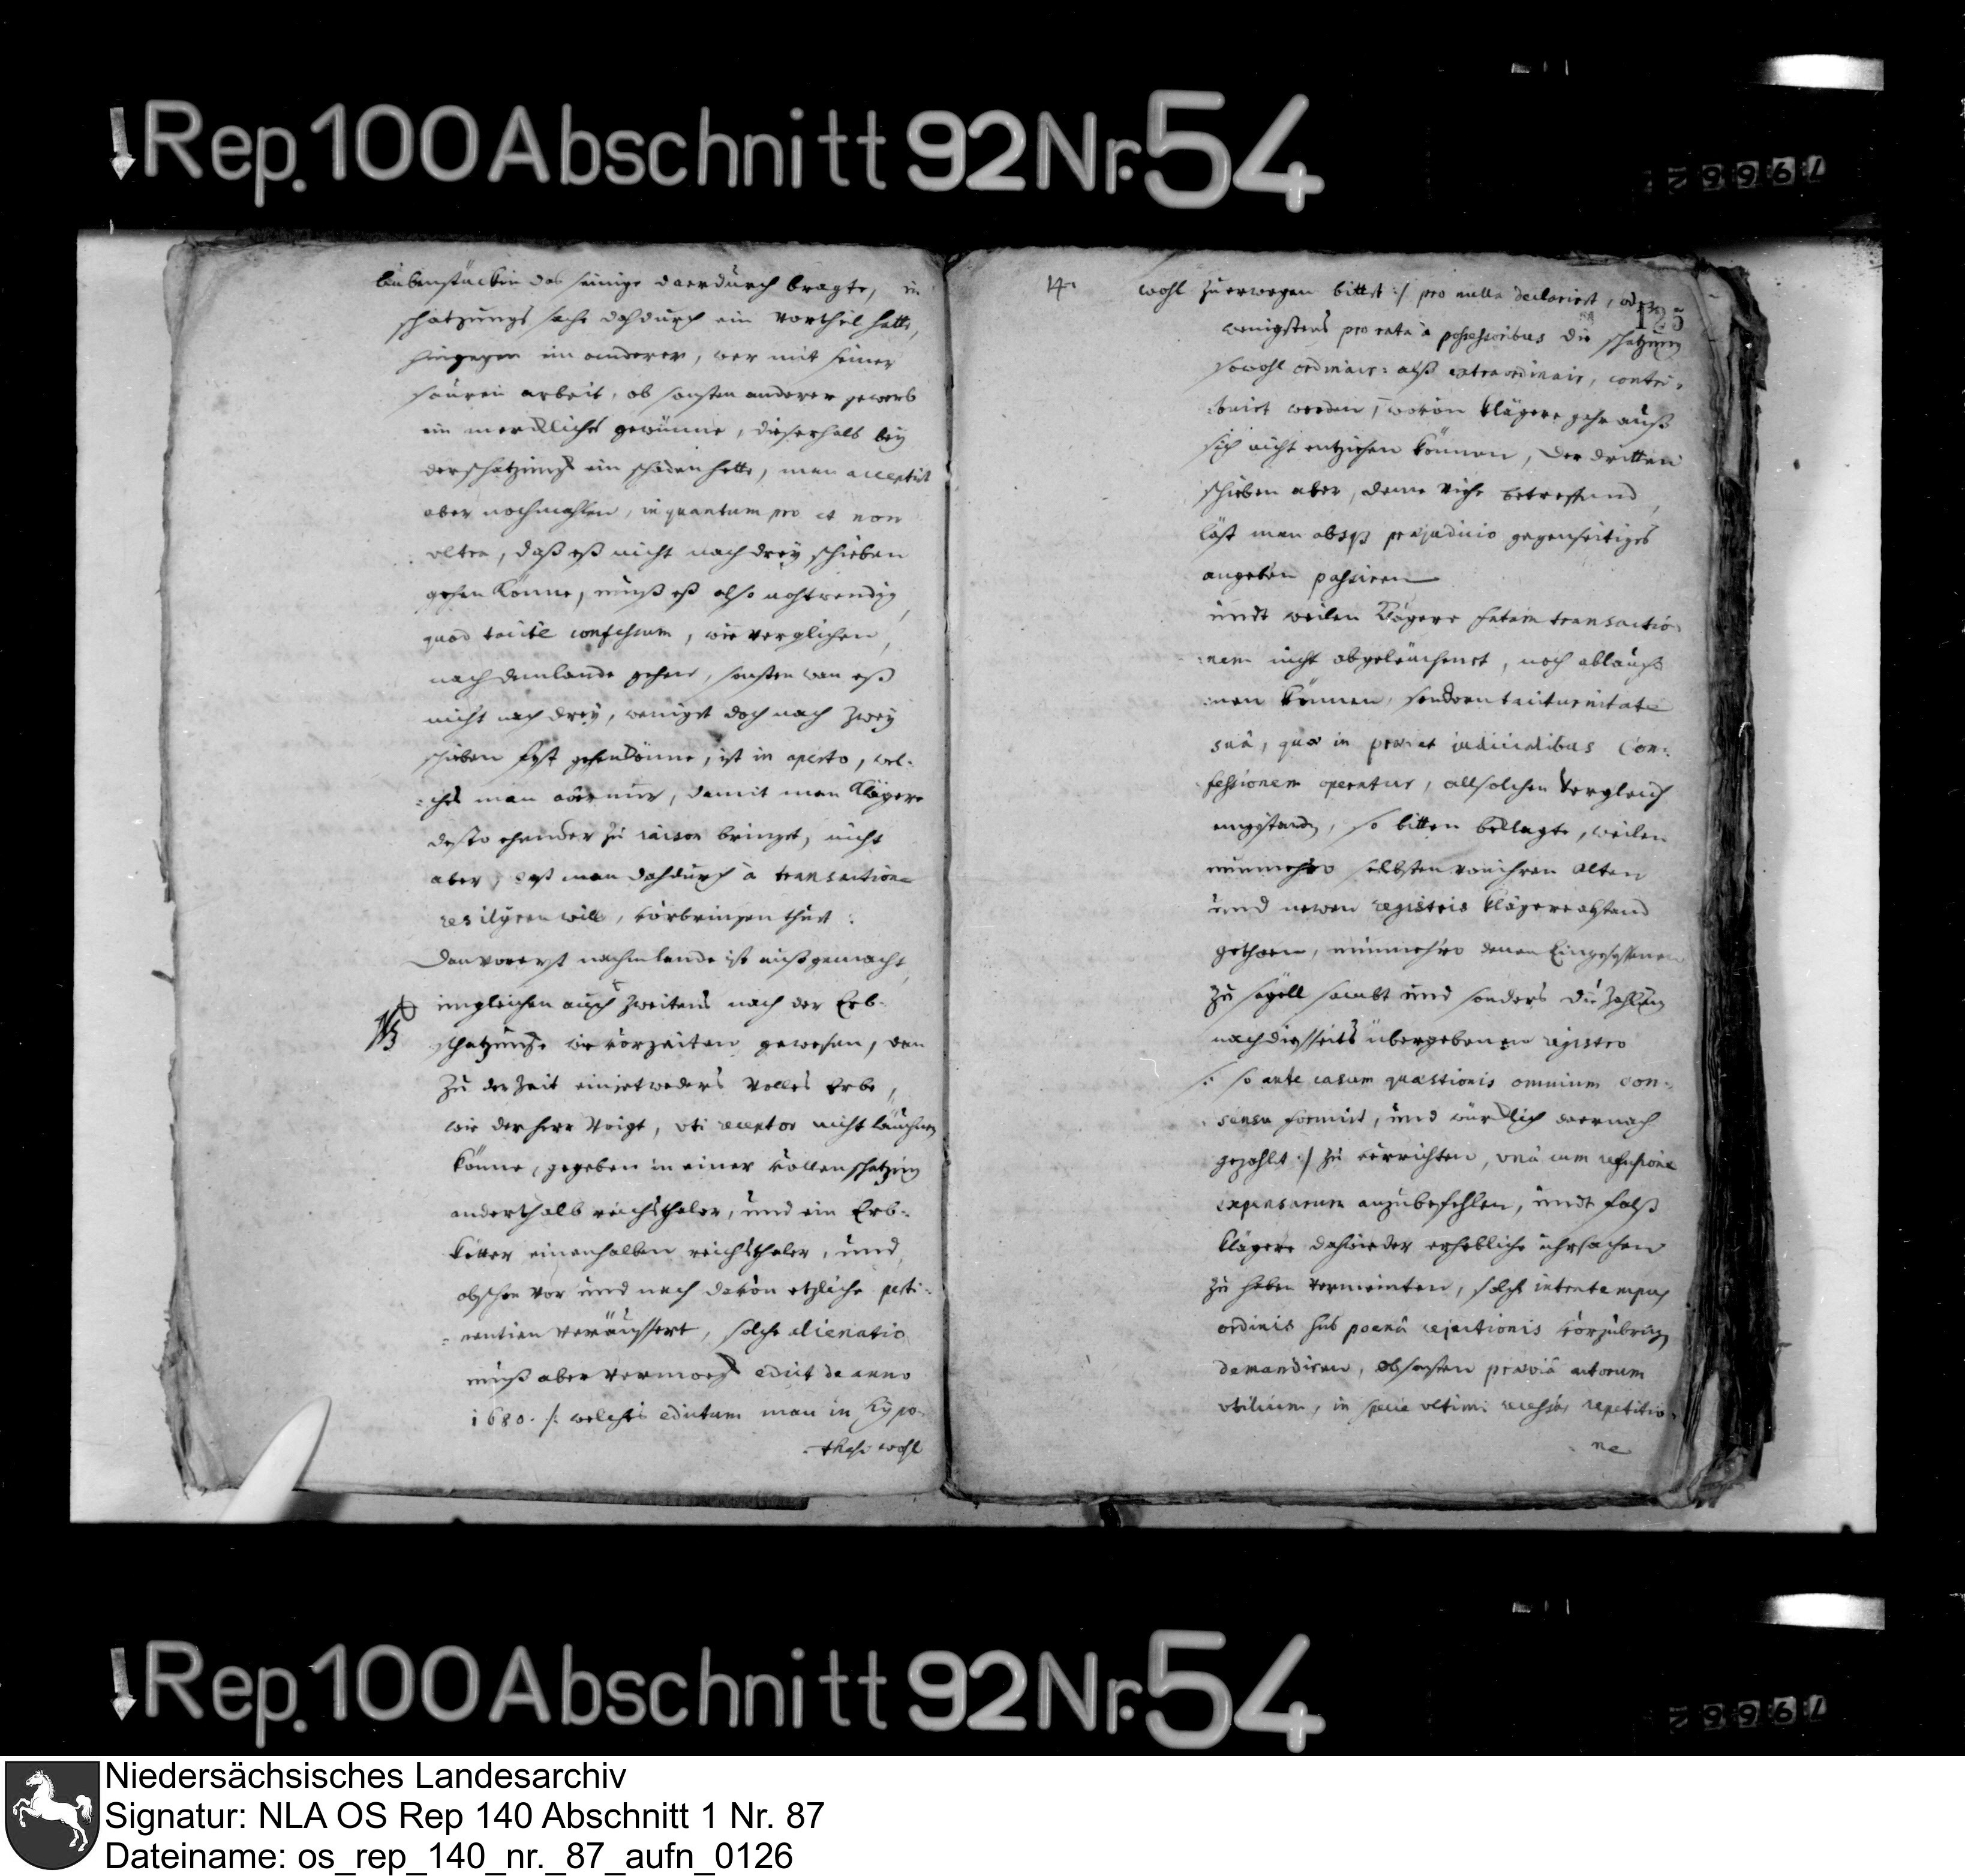 Rep. 100 Abschnitt 92 Nr. 54
29967
bubenstückin das seinige dardurch bragte, in
schatzungs sache dahdurch ein Vortheil hatte,
hingegen ein anderer, wer mit seiner
sauren arbeit, ob sonsten anderer gewerb
ein merckliches gewünne, dieserhalb bey
der schatzung ein schaden hette, man acceptirt
aber nochmahlen, in quantum pro et non
ultra, daß eß nicht nach drey schieben
gehen könne, muß eß also nohtwendig,
quod tacitè confessum, wie verglichen,
nach dem lande gehen, sonsten wan eß
nicht nach drey, wenigst doch nach zwey
schieben gehen könne, ist in aperto, wel-
ches man aber nur, damit man Klägere
desto ehender zu raison bringet, nicht
aber, daß man dahdurch à transactione
resilyren will, vorbringen thut.
Dan vorerst nachm lande ist außgemacht,
imgleichen auch zweitens nach der Erb-
NB schatzung wie vorzeiten gewesen, dan
zu der Zeit ein jetweders Volles Erbe,
wie der herr Voigt, uti receptor nicht läuchnen
könne, gegeben in einer vollen schatzung
anderthalb reichsthaler, und ein Erb-
kötter einen halben reichsthaler, und
obschon vor und nach davon etzliche perti-
nentien veräussert, solche alienatio
muß aber vermoeg edict de anno
1680. /: welches edictum man in hypo-
thesi wohl
14.
125
wohl zu erwegen bittet :/ pro nulla declarirt, oder
wenigstens pro rata à possessoribus die schatzung
sowohl ordinair- alß extraordinair, contri-
buirt werden, wovon klägere gehrauß
sich nicht entziehen können, der dritten
schieben aber, deme Viehe betreffend,
läst man absque praejudicio gegenseitiges
angeben passiren
undt weilen Klägere fatam transactio-
nem nicht abgeleuchenet, noch ableuch-
nen können, sondern taciturnitate
suâ, quae in judicialibus con-
fessionem operatur, allsolchen Vergleich
eingstand, so bitten beklagte, weilen
nunmehro selbsten von ihren alten
und newen registris klägere abstand
gethaen, nunmehro denen Eingesessenen
zu sagell sambt und sonders die Zahlung
nach diesseits übergebenen registro
/: so ante casum quaestionis omnium con-
sensu formirt, und würcklich darnach
gezahlt :/ zu verrichten, unà cum refusione
expensarum anzubefehlen, undt falß
klägere dahwieder erhebliche uhrsachen
zu haben vermeinten, solche intra tempus
ordinis sub poenâ rejectionis vorzubringen
demandiren, ob sonsten praeviâ actorum
utilium, in specie ultimi recessus repetitio-
ne
Rep. 100 Abschnitt 92 Nr. 54
29967
Niedersächsisches Landesarchiv
Signatur: NLA OS Rep 140 Abschnitt 1 Nr. 87
Dateiname: os_rep_140_nr._87_aufn_0126